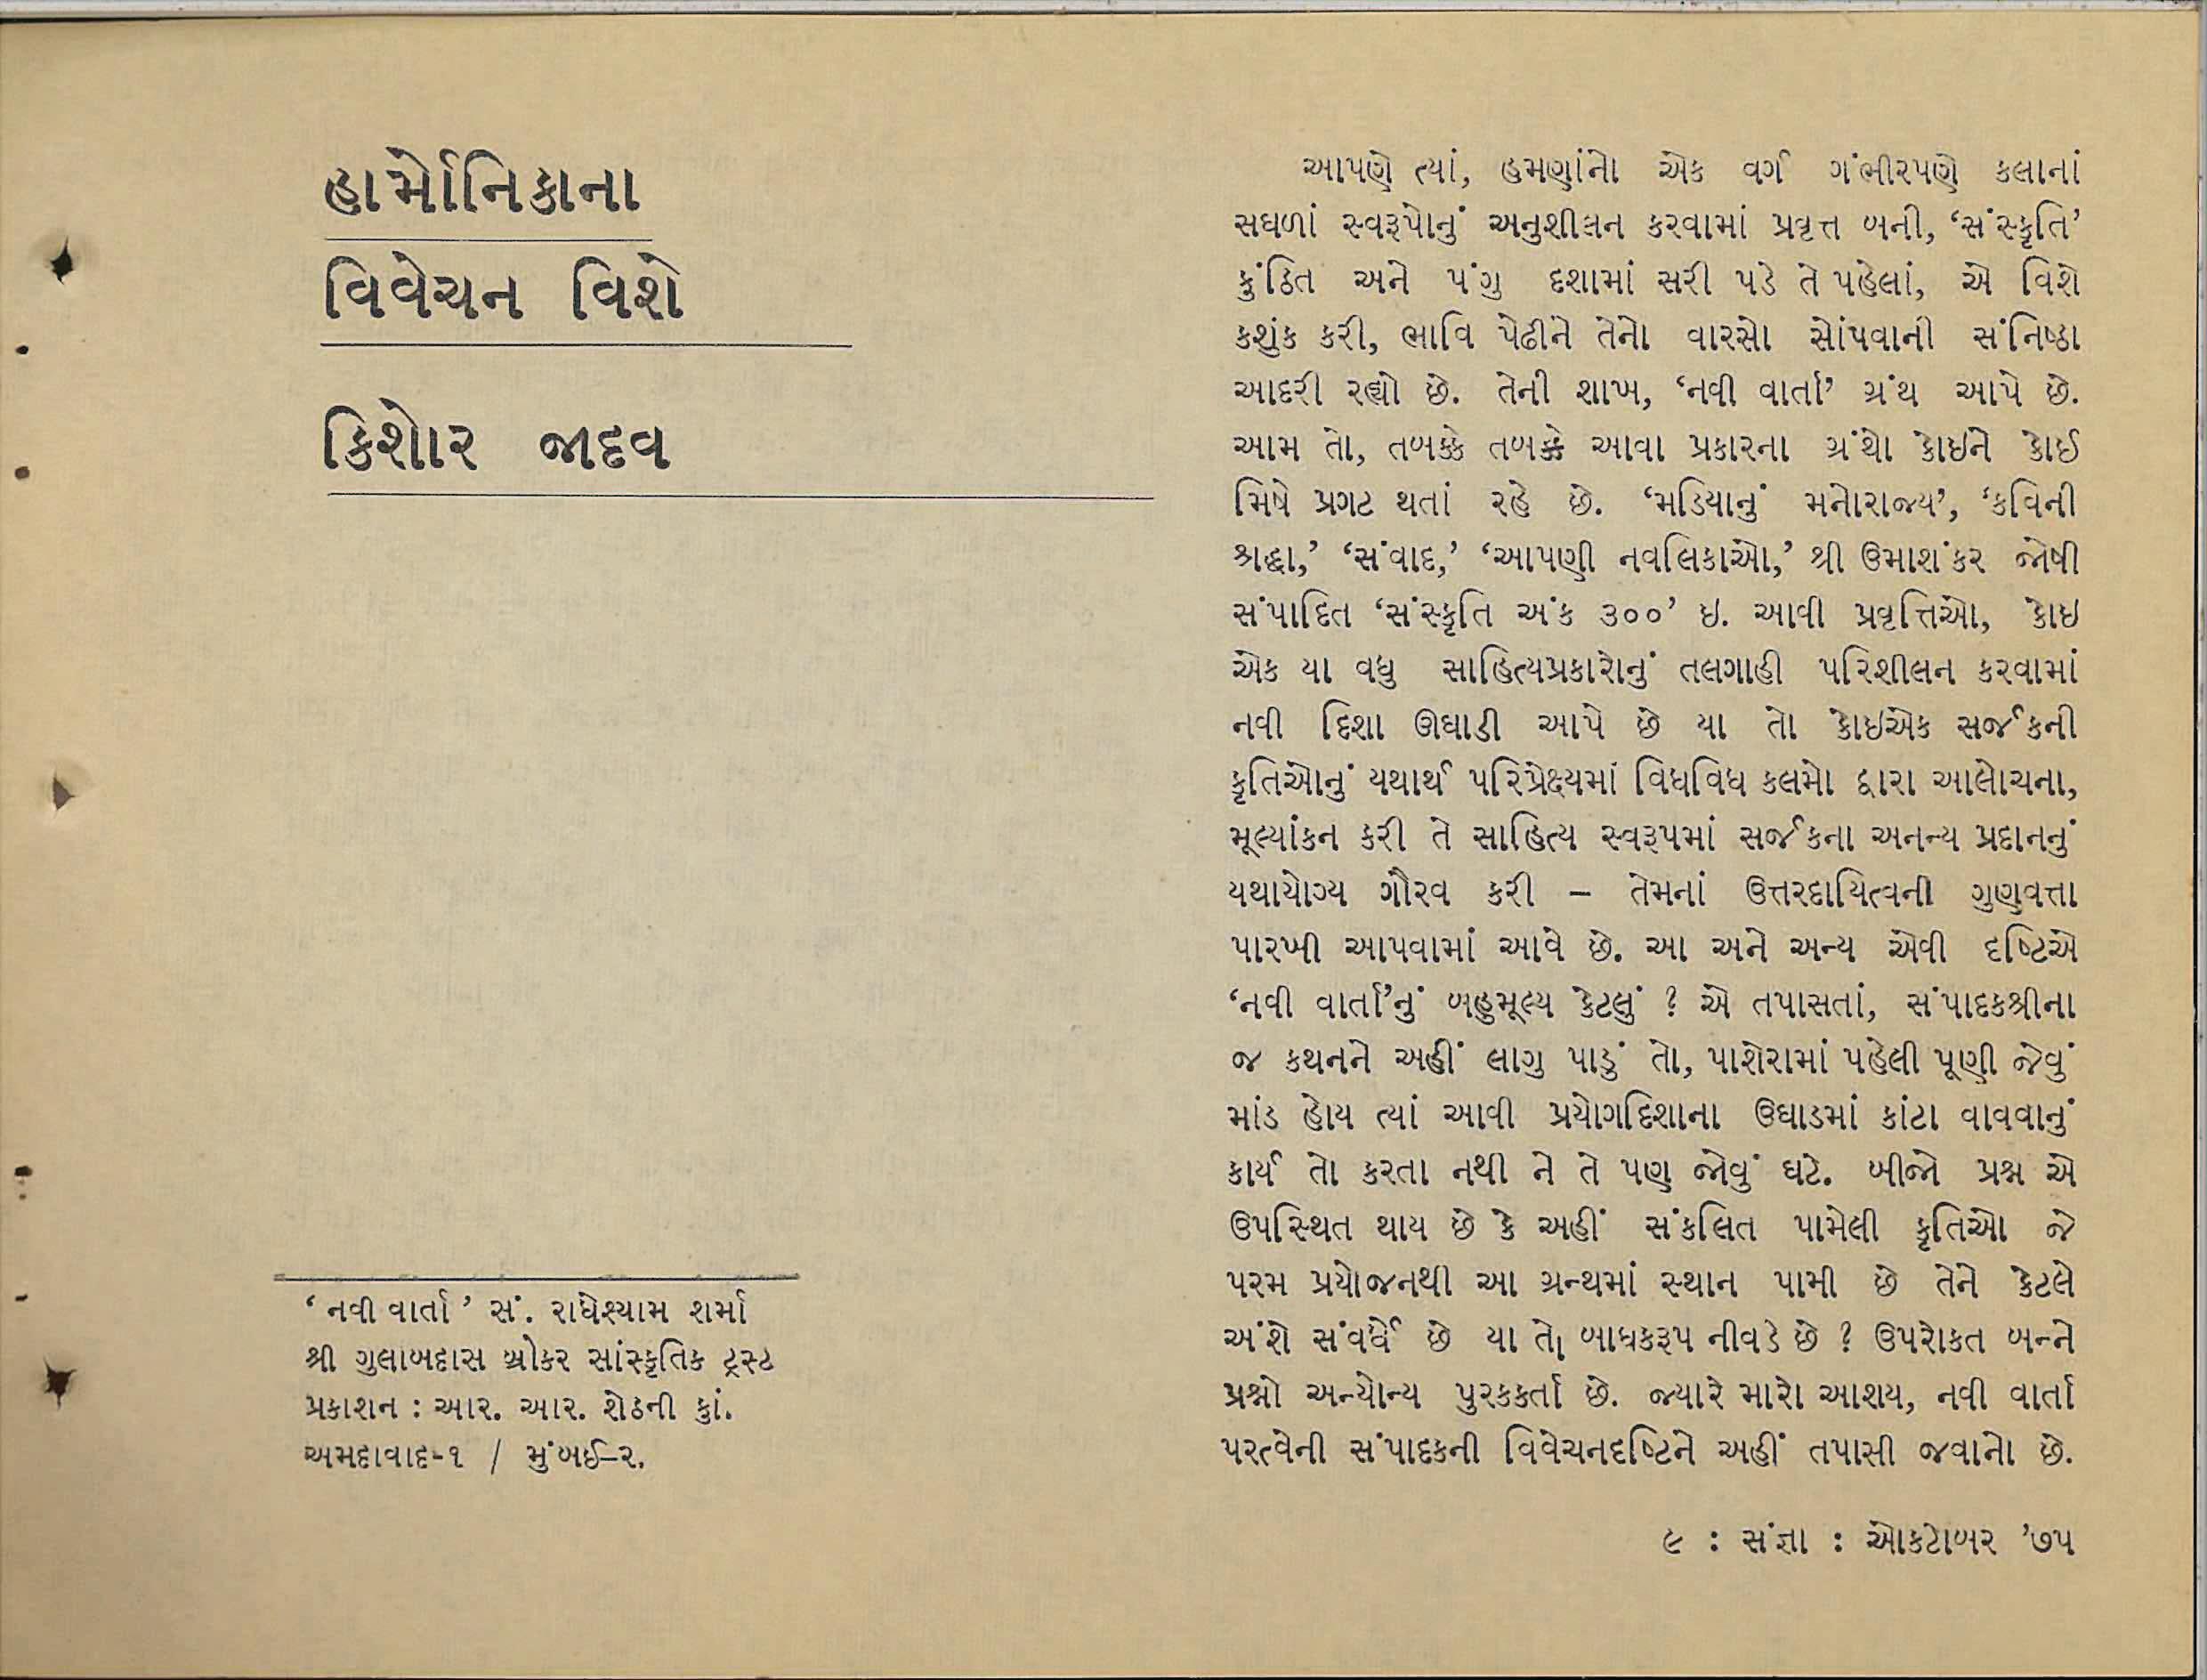 હાર્મોનિકાના
વિવેચન વિશે
કિશોર જાદવ
‘નવી વાર્તા’ સં. રાધેશ્યામ શર્મા
શ્રી ગુલાબદાસ બ્રોકર સાંસ્કૃતિક ટ્રસ્ટ
પ્રકાશન : આર. આર. શેઠની કું.
અમદાવાદ-૧ / મુંબઈ-૨.
આપણે ત્યાં, હમણાંનો એક વર્ગ ગંભીરપણે કલાનાં
સઘળાં સ્વરૂપોનું અનુશીલન કરવામાં પ્રવૃત્ત બની, ‘સંસ્કૃતિ’
કુંઠિત અને પંગુ દશામાં સરી પડે તે પહેલાં, એ વિશે
કશુંક કરી, ભાવિ પેઢીને તેનો વારસો સોંપવાની સંનિષ્ઠા
આદરી રહ્યો છે. તેની શાખ, ‘નવી વાર્તા’ ગ્રંથ આપે છે.
આમ તો, તબક્કે તબક્કે આવા પ્રકારના ગ્રંથો કોઇને કોઈ
મિષે પ્રગટ થતાં રહે છે. ‘મડિયાનું મનોરાજ્ય’, ‘કવિની
શ્રદ્ધા,’ ‘સંવાદ,’ ‘આપણી નવલિકાઓ,’ શ્રી ઉમાશંકર જોષી
સંપાદિત ‘સંસ્કૃતિ અંક ૩૦૦’ ઇ. આવી પ્રવૃત્તિઓ, કોઇ
એક યા વધુ સાહિત્યપ્રકારોનું તલગાહી પરિશીલન કરવામાં
નવી દિશા ઊઘાડી આપે છે યા તો કોઇએક સર્જકની
કૃતિઓનું યથાર્થ પરિપ્રેક્ષ્યમાં વિધવિધ કલમો દ્વારા આલોચના,
મૂલ્યાંકન કરી તે સાહિત્ય સ્વરૂપમાં સર્જકના અનન્ય પ્રદાનનું
યથાયોગ્ય ગૌરવ કરી – તેમનાં ઉત્તરદાયિત્વની ગુણવત્તા
પારખી આપવામાં આવે છે. આ અને અન્ય એવી દષ્ટિએ
‘નવી વાર્તા’નું બહુમૂલ્ય કેટલું ? એ તપાસતાં, સંપાદકશ્રીના
જ કથનને અહીં લાગુ પાડું તો, પાશેરામાં પહેલી પૂણી જેવું
માંડ હોય ત્યાં આવી પ્રયોગદિશાના ઉઘાડમાં કાંટા વાવવાનું
કાર્ય તો કરતા નથી ને તે પણ જોવું ઘટે. બીજો પ્રશ્ન એ
ઉપસ્થિત થાય છે કે અહીં સંકલિત પામેલી કૃતિઓ જે
પરમ પ્રયોજનથી આ ગ્રન્થમાં સ્થાન પામી છે તેને કેટલે
અંશે સંવર્ધે છે યા તો બાધકરૂપ નીવડે છે ? ઉપરોકત બન્ને
પ્રશ્નો અન્યોન્ય પુરકકર્તા છે. જ્યારે મારો આશય, નવી વાર્તા
પરત્વેની સંપાદકની વિવેચનદષ્ટિને અહીં તપાસી જવાનો છે.
૯ : સંજ્ઞા : ઓકટોબર ’૭૫